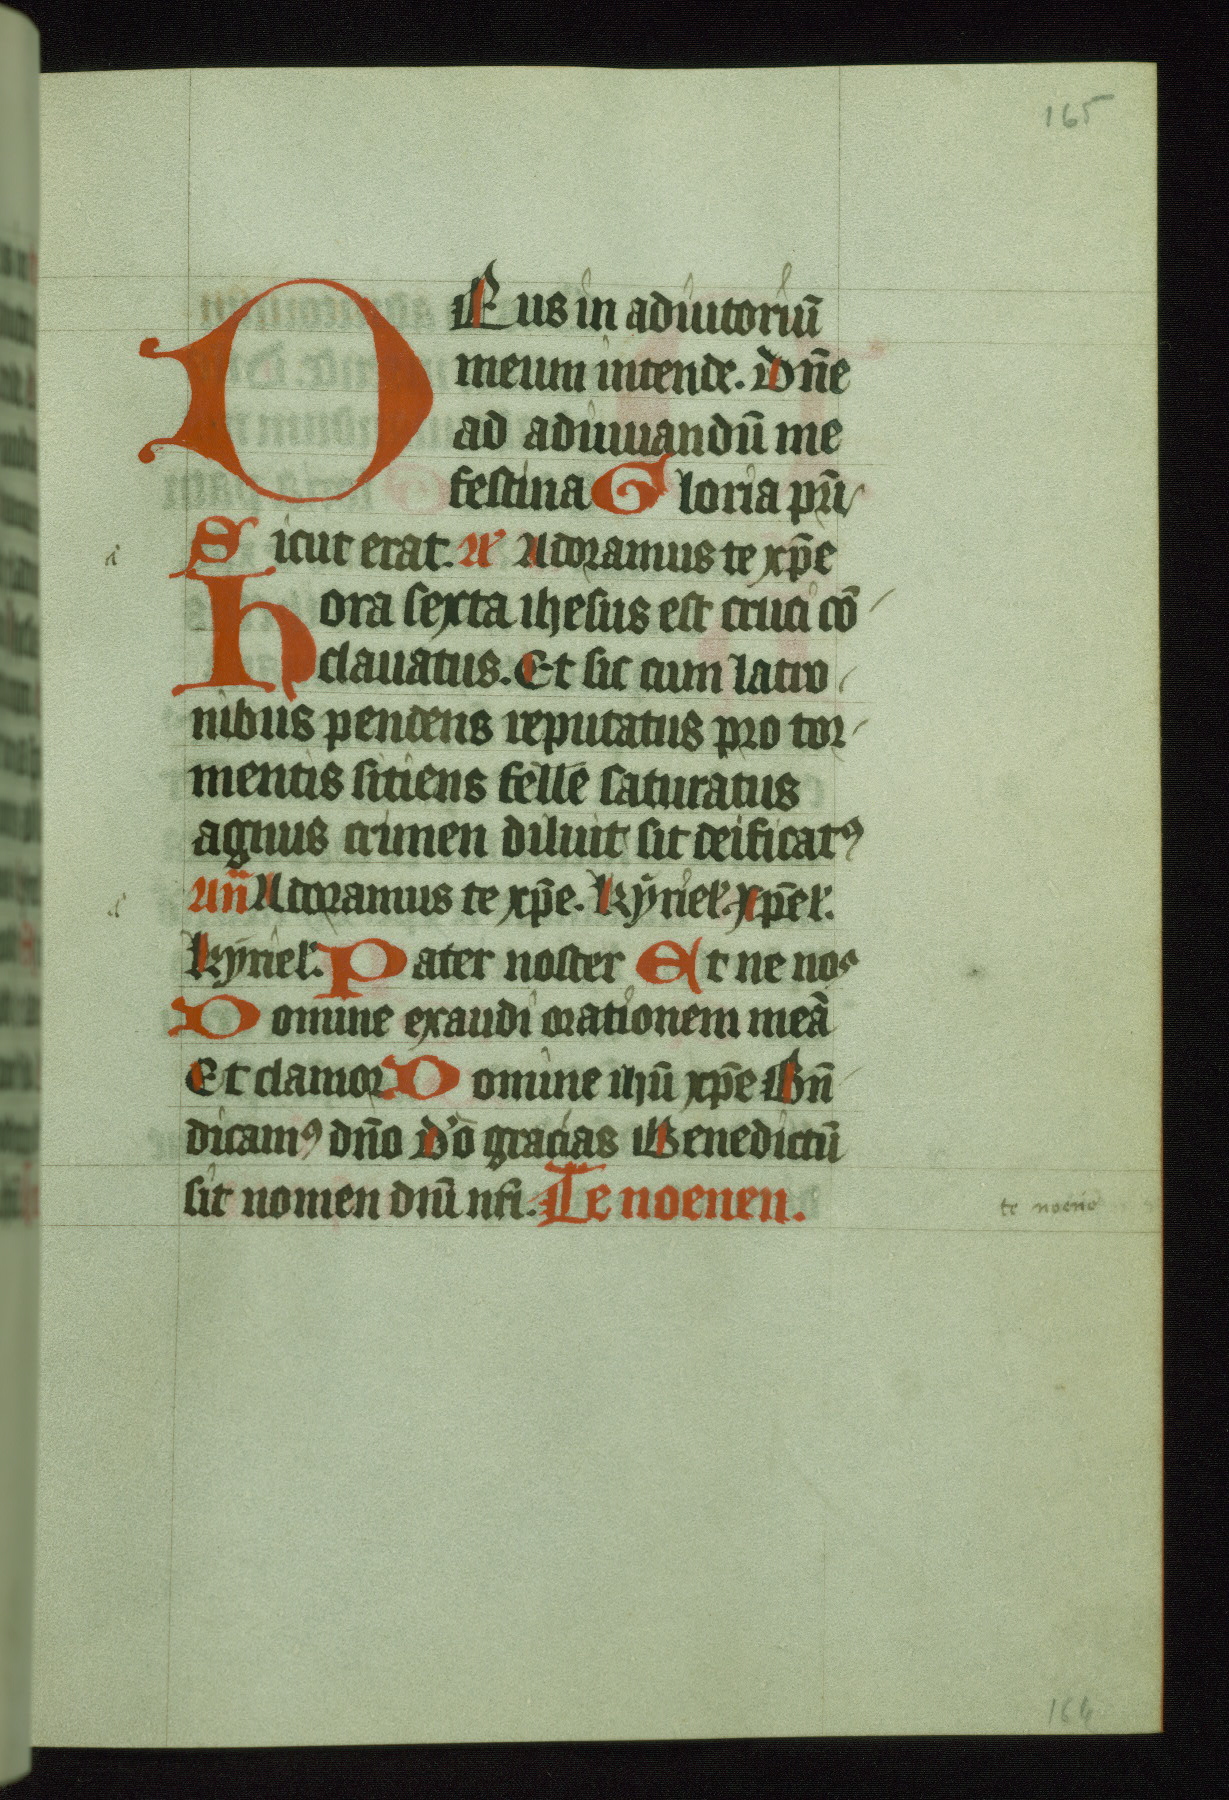 165
DEus in adiutoriū
meum intende. Dn̄e
ad adiuuandū me
festina Gloria pr̄i
Sicut erat. Aͤ Adoramus te xp̄e
hora sexta ihesus est cruci cō
clauatus. Et sic cum latro
nibus pendens reputatus pro tor
mentis sitiens felle saturatus
agnus crimen diluit sit deificatꝯ
An̄ Adoramus te xp̄e. kyriel'. xp̄el'.
kyriel'. Pater noster Et ne nos
Domine exaudi orationem meā
Et clamor Domine ihū xp̄e Bn̄
dicamꝯ dn̄o D'ō gracias Benedictū
sit nomen dnī nr̄i. Te noenen.
te noene
164